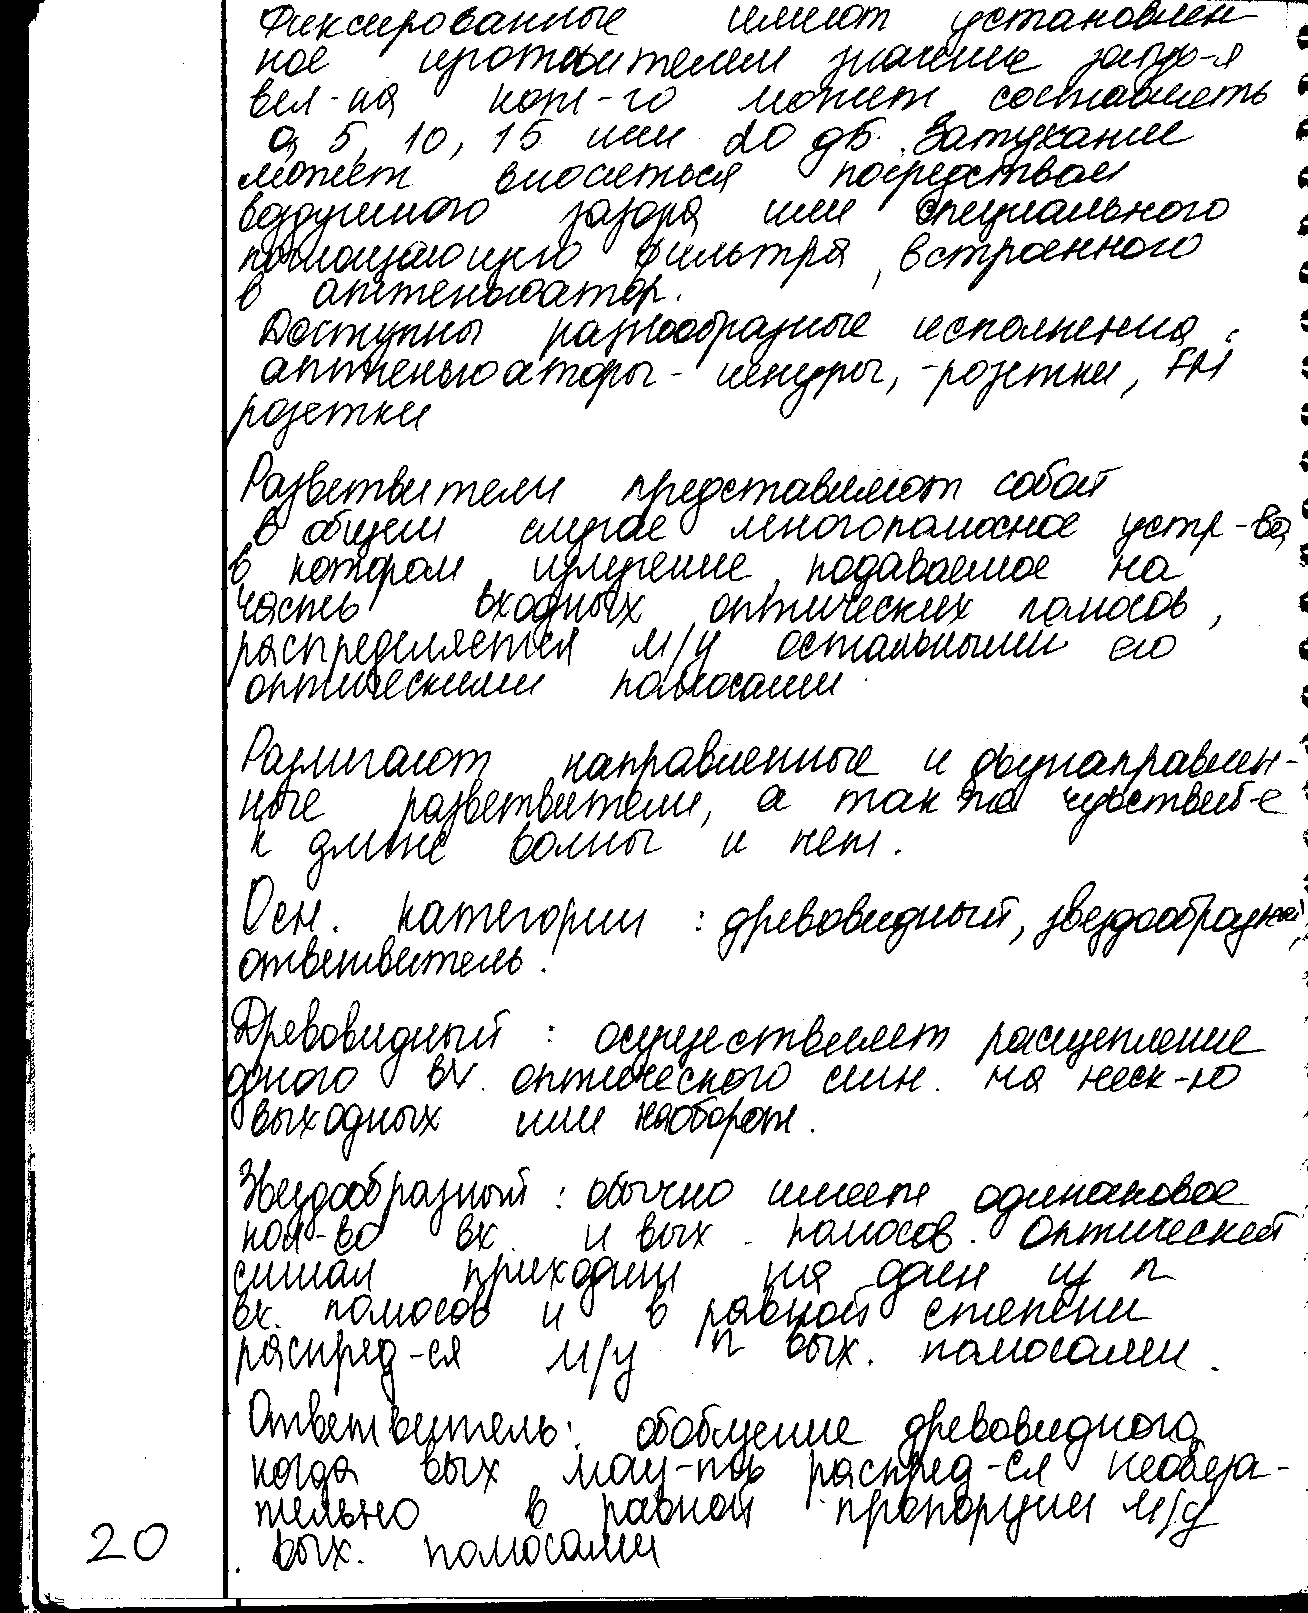 Фиксированные имеют установлен
ное изготовителем значение затух-я
вел-на кот-го может составлять
0, 5, 10, 15 или 20 дБ. Затухание
может вноситься посредством
воздушного зазора или специального
поглощающего фильтра, встроенного
в аттенюатор.
Доступны разнообразные исполнения:
аттенюаторы - шнуры, -розетки, FM
розетки
Разветвители представляют собой
в общем случае многополюсное устр-во,
в котором излучение, подаваемое на
часть входных оптических полюсов,
распределяется м/у остальными его
оптическими полюсами
Различают направленные и двунаправлен-
ные разветвители, а так же чувствит-е
к длине волны и нет.
Осн. категории: древовидный, звездообразный,
ответвитель.
Древовидный: осуществляет расщепление
одного вх. оптического сигн. на неск-ко
выходных или наоборот.
Звездообразный: обычно имеет одинаковое
кол-во вх. и вых. полюсов. Оптический
сигнал приходит на один из n
вх. полюсов и в равной степени
распред-ся м/у n вых. полюсами.
Ответвитель: обобщение древовидного,
когда вых мощ-ть распред-ся необяза-
тельно в равной пропорции м/у
вых. полюсами
20